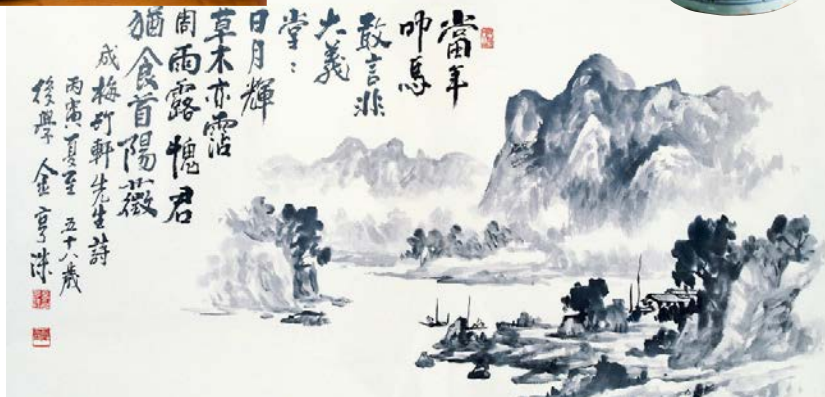 當年
叩馬
敢言非
大義
堂:
日月輝
草木亦霑
周雨露愧君
猶食首陽薇
成梅竹軒先生詩
丙寅夏至 五十八歲
後學 金亨洙